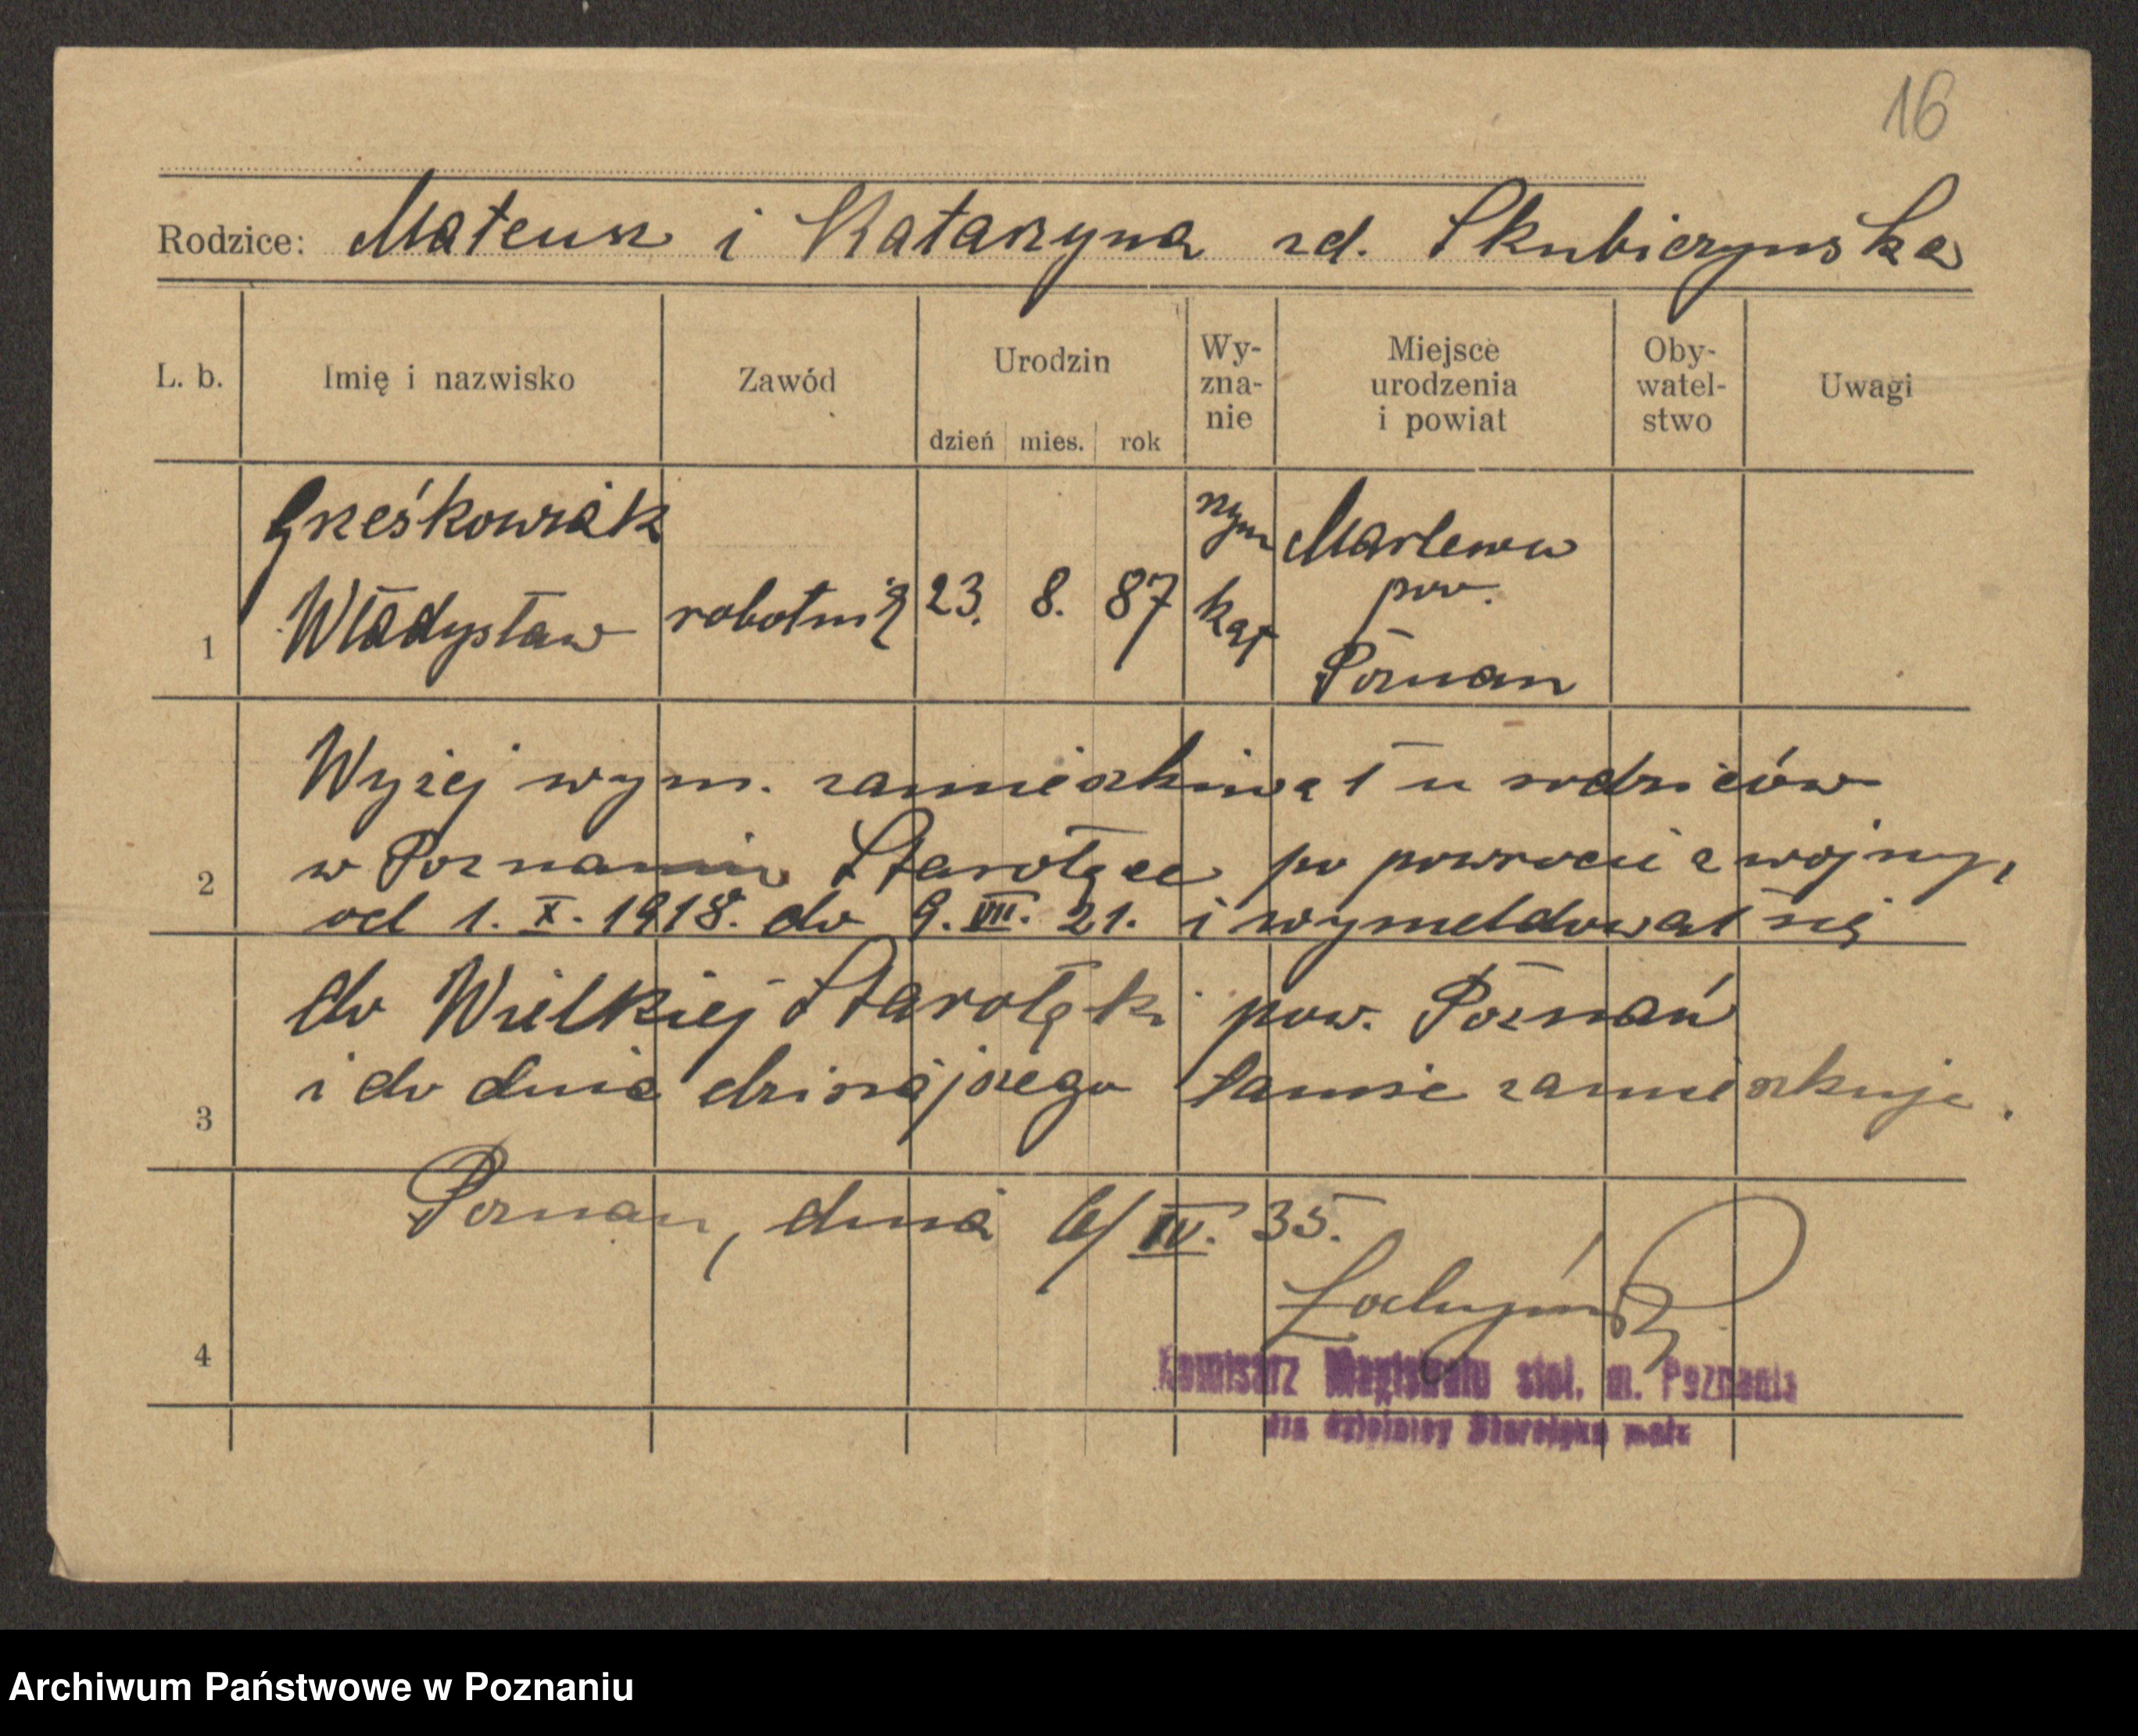 16
Rodzice: Mateusz i Katarzyna zd. Skubiczyńska
L. b. Imię i nazwisko Zawód Urodzin dzień mies. rok Wy-zna-nie Miejsce urodzenia i powiat Oby-watel-stwo Uwagi
Grześkowiak rzym Marlewo
pow.
1 Władysław robotnik 23. 8. 87 kat
Poznan
Wyżej wym. zamieszkiwał u rodziców
2 w Poznaniu Starołęce po powrocie z wojny,
od 1. X. 1918. do 9. VII. 21. i wymeldował się
do Wielkiej Starołęki pow. Poznań
3 i do dnia dzisiajszego tamże zamieszkuje.
Poznan, dnia 6/IV. 35.
4
Komisarz Magistratu stoł. m. Poznania
dla dzielnicy Starołęka mała
Archiwum Państwowe w Poznaniu